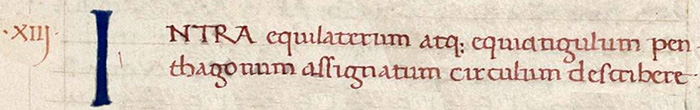 ·XIIJ· INTRA equilaterum atq; equiangulum pen
thagonum assignatum circulum describere